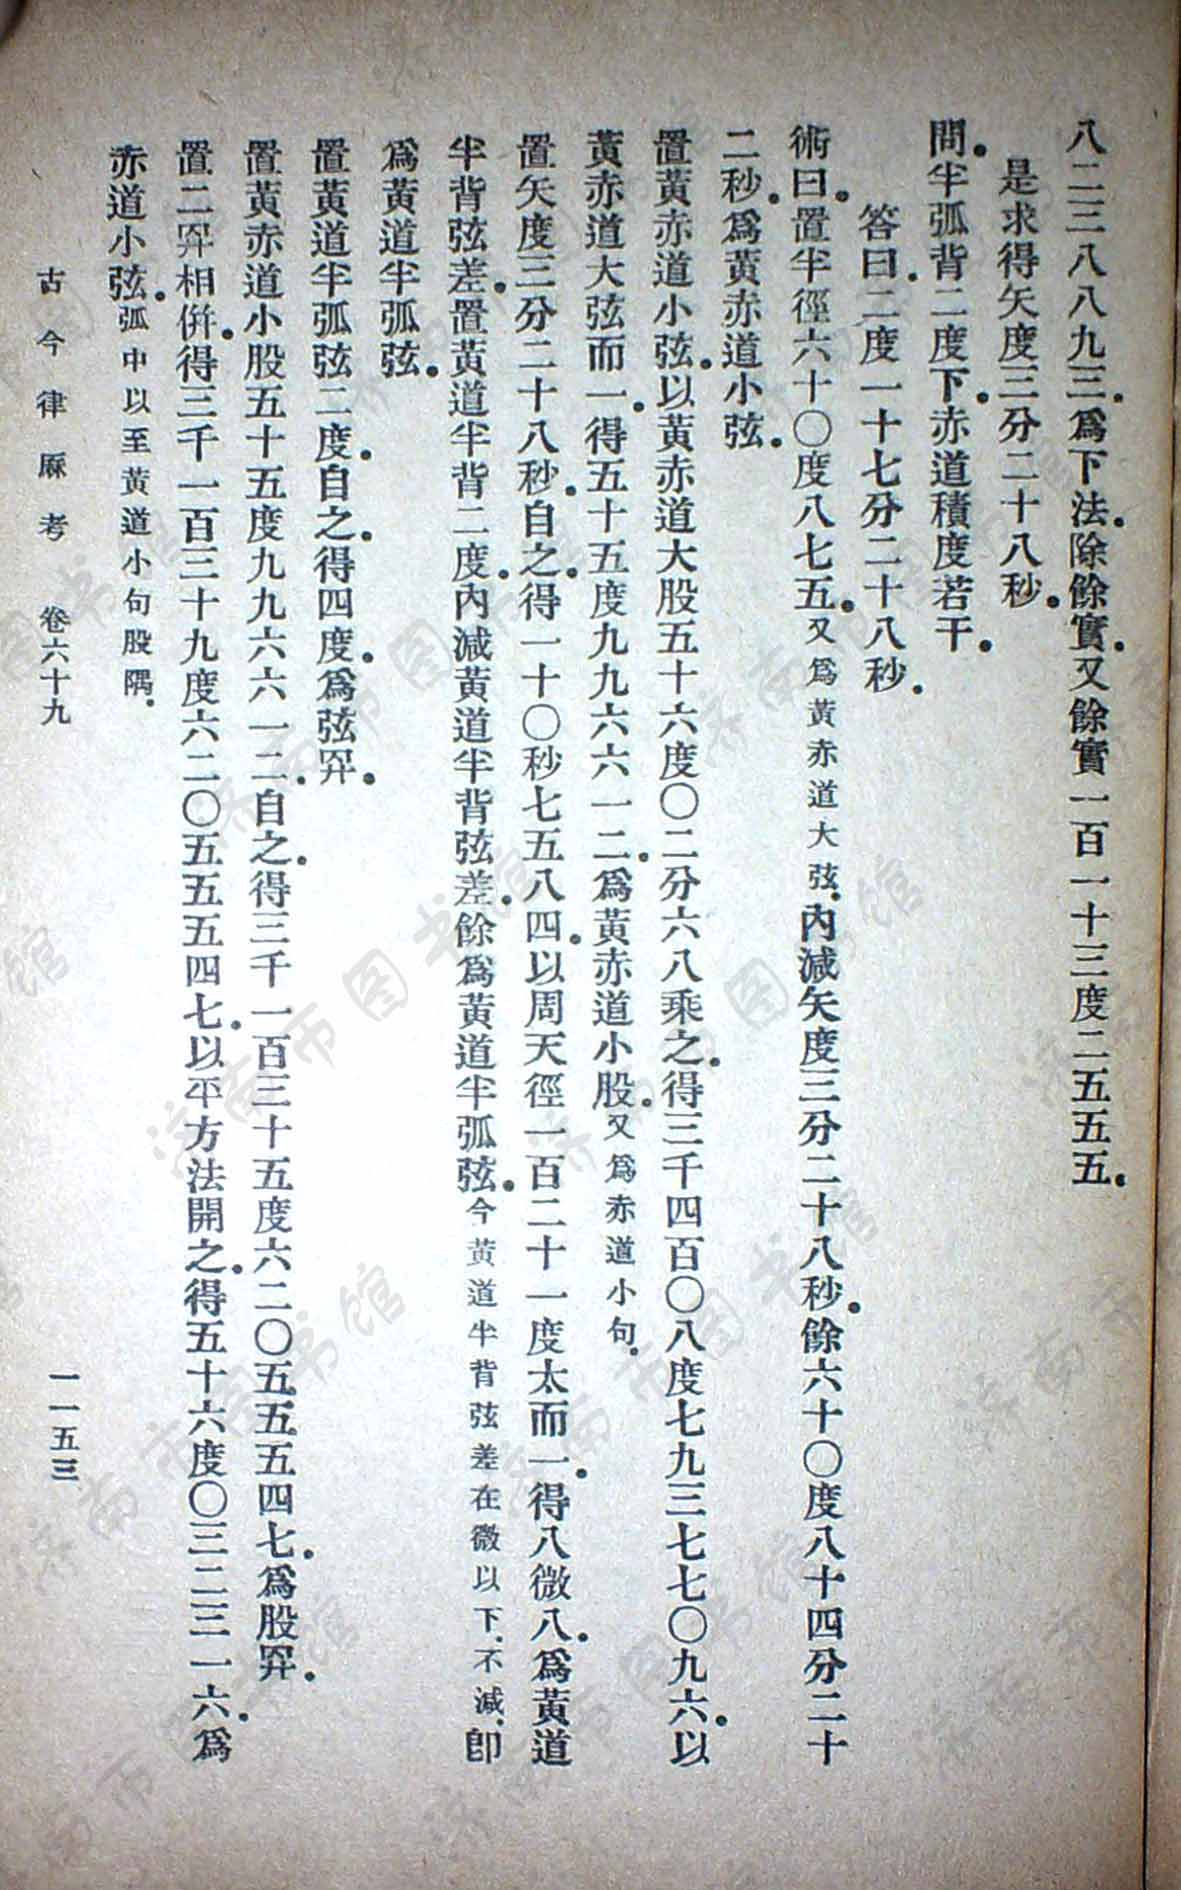 八二三八八九三.爲下法.除餘實.又餘實一百一十三度二五五五.
是求得矢度三分二十八秒.
問.半弧背二度下.赤道積度若干.
答曰.二度一十七分二十八秒.
術曰.置半徑六十〇度八七五.又爲黃赤道大弦.內減矢度三分二十八秒.餘六十〇度八十四分二十
二秒.爲黃赤道小弦.
置黃赤道小弦.以黃赤道大股五十六度〇二分六八乘之.得三千四百〇八度七九三七七〇九六.以
黃赤道大弦而一.得五十五度九九六六一二.爲黃赤道小股.又爲赤道小句.
置矢度三分二十八秒.自之.得一十〇秒七五八四.以周天徑一百二十一度太而一.得八微八.爲黃道
半背弦差.置黃道半背二度.內減黃道半背弦差.餘爲黃道半弧弦.今黃道半背弦差在微以下.不減.卽
爲黃道半弧弦.
置黃道半弧弦二度.自之.得四度.爲弦冪.
置黃赤道小股五十五度九九六六一二.自之.得三千一百三十五度六二〇五五五四七.爲股冪.
置二冪相併.得三千一百三十九度六二〇五五五四七.以平方法開之.得五十六度〇三二三一六.爲
赤道小弦.弧中以至黃道小句股隅.
古今律厤考 卷六十九 一一五三
济南市图书馆